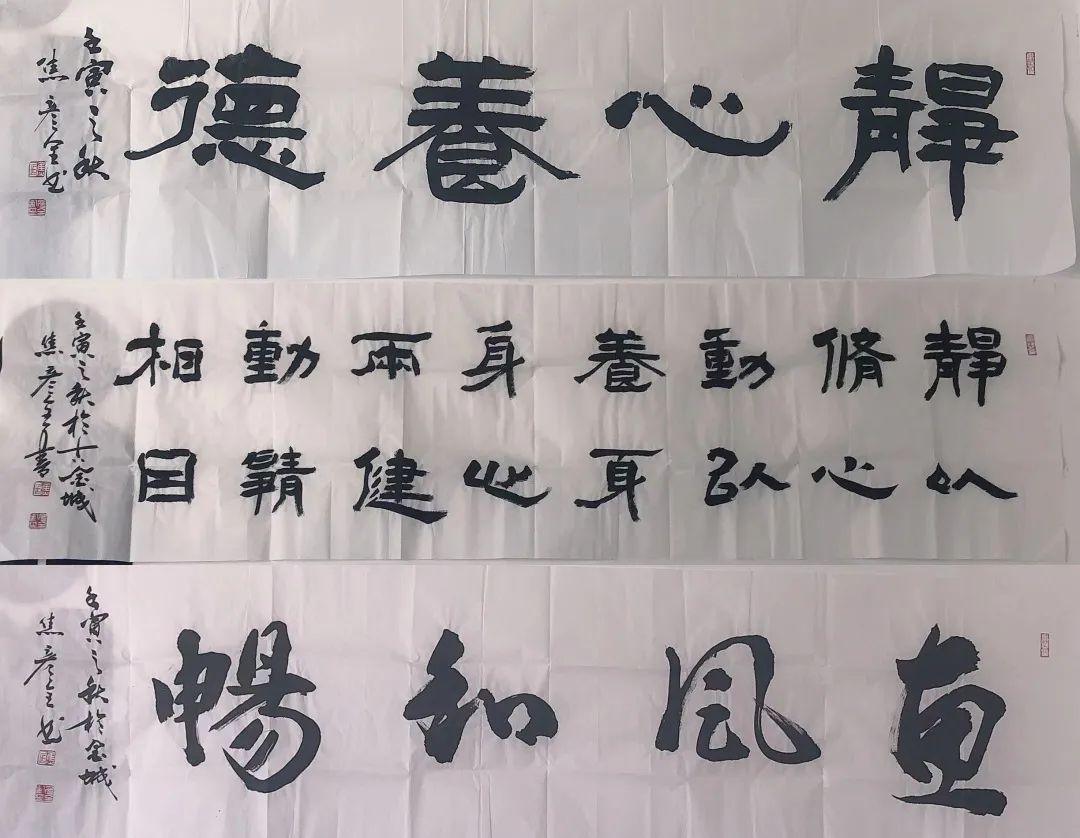 靜心養德
壬寅之秋
焦彥全书
靜以
脩心
動以
養身
身心
兩健
動靜
相因
壬寅之秋於古金城
焦彥全書
惠風和暢
壬寅之秋於金城
焦彥全书